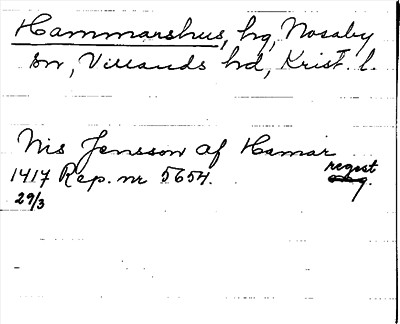 Hammarshus, hg, Nosaby
sn, Villands hd, Krist. l.
Nis Jensson af Hamar
1417 Rep. nr 5654. regest
29/3